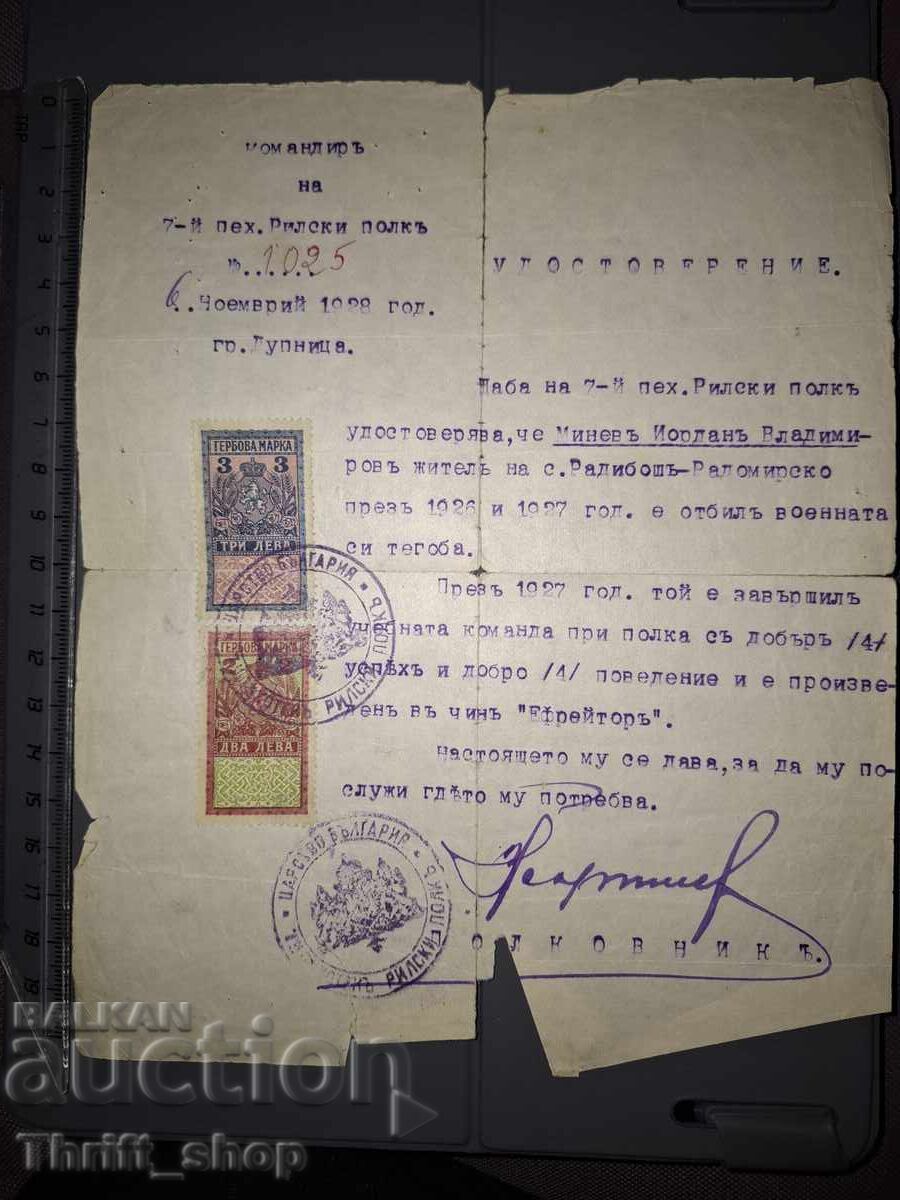 Командиръ
на
7-й пех.Рилски полкъ
№..1025
6..Ноемврий 1928 год.
гр.Дупница.
УДОСТОВЕРЕНИЕ.
Щаба на 7-й пех.Рилски полкъ
удостоверява,че Миневъ Йорданъ Владими-
ровъ житель на с.Радибошъ-Радомирско
презъ 1926 и 1927 год. е отбилъ военната
си тегоба.
Презъ 1927 год. той е завършилъ
учебната команда при полка съ добъръ /4/
успѣхъ и добро /4/ поведение и е произве-
денъ въ чинъ "Ефрейторъ".
Настоящето му се дава,за да му по-
служи гдѣто му потребва.
ОЛКОВНИКЪ.
ГЕРБОВА МАРКА
3 3
ТРИ ЛЕВА
ГЕРБОВА МАРКА
2
ДВА ЛЕВА
ЦАРСТВО БЪЛГАРИЯ
РИЛСКИ ПОЛКЪ
ЦАРСТВО БЪЛГАРИЯ
РИЛСКИ ПОЛКЪ
0
1
2
3
4
5
6
7
8
9
10
11
12
13
14
15
16
17
18
19
BALKAN
auction
Thrift_shop